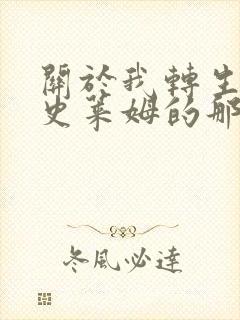 關於我轉生
史萊姆的那
冬風必達